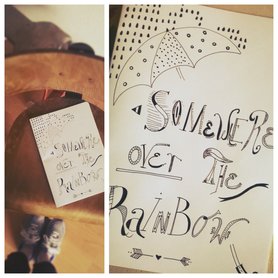 SOMEWHERE
OVER THE
RAINBOW
SOMEWHERE
OVER THE
RAINBOW